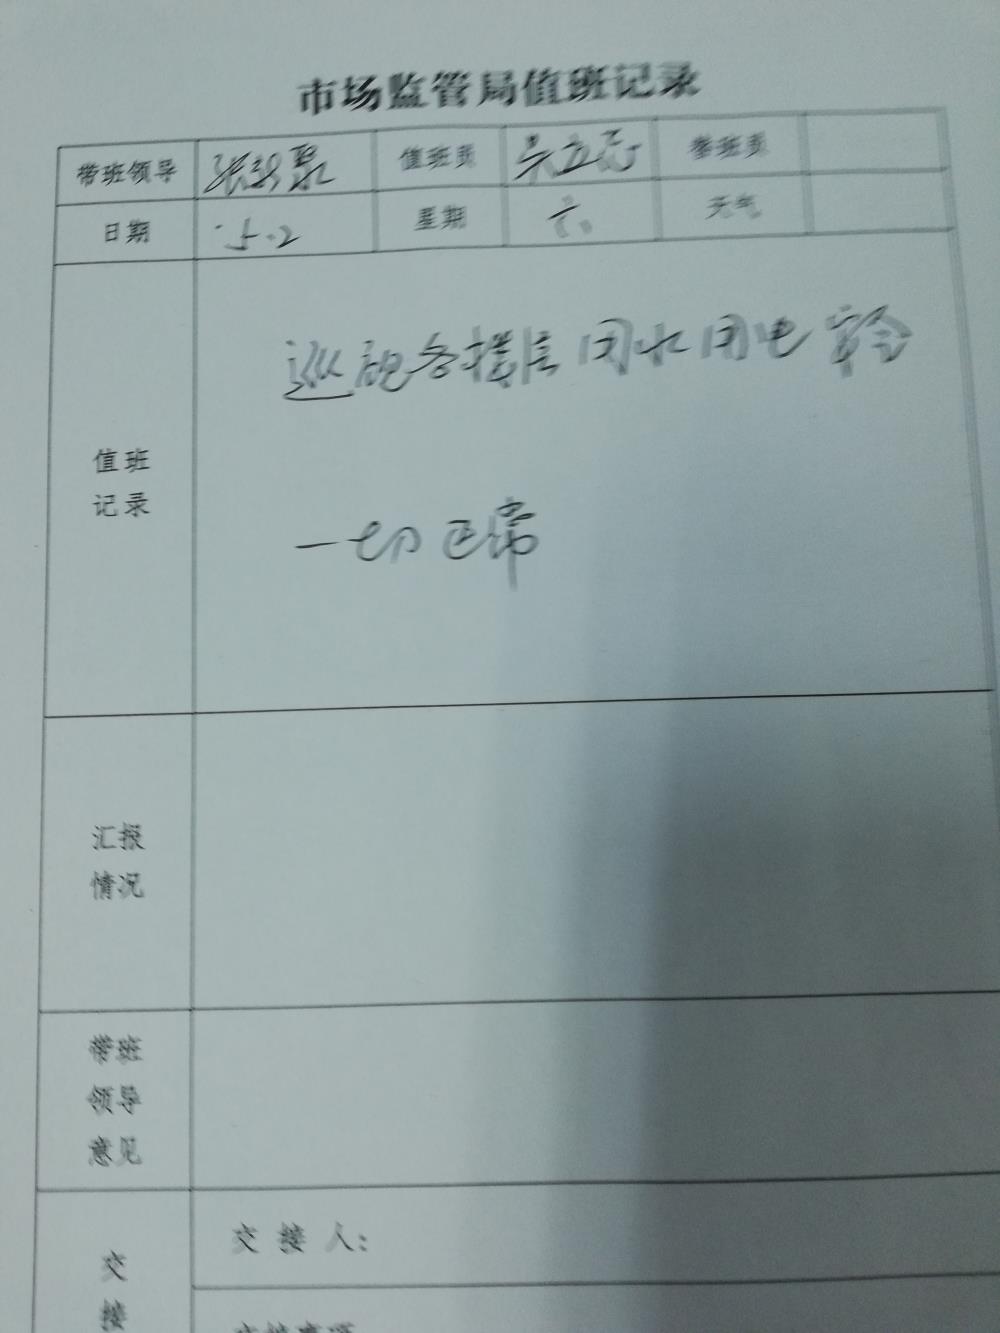 市场监管局值班记录
带班领导 值班员 参班员
日期 5.2 星期 六 天气
值班
记录
巡视各楼层 闭水闭电 安全
一切正常
汇报
情况
带班
领导
意见
交
接
交 接 人: